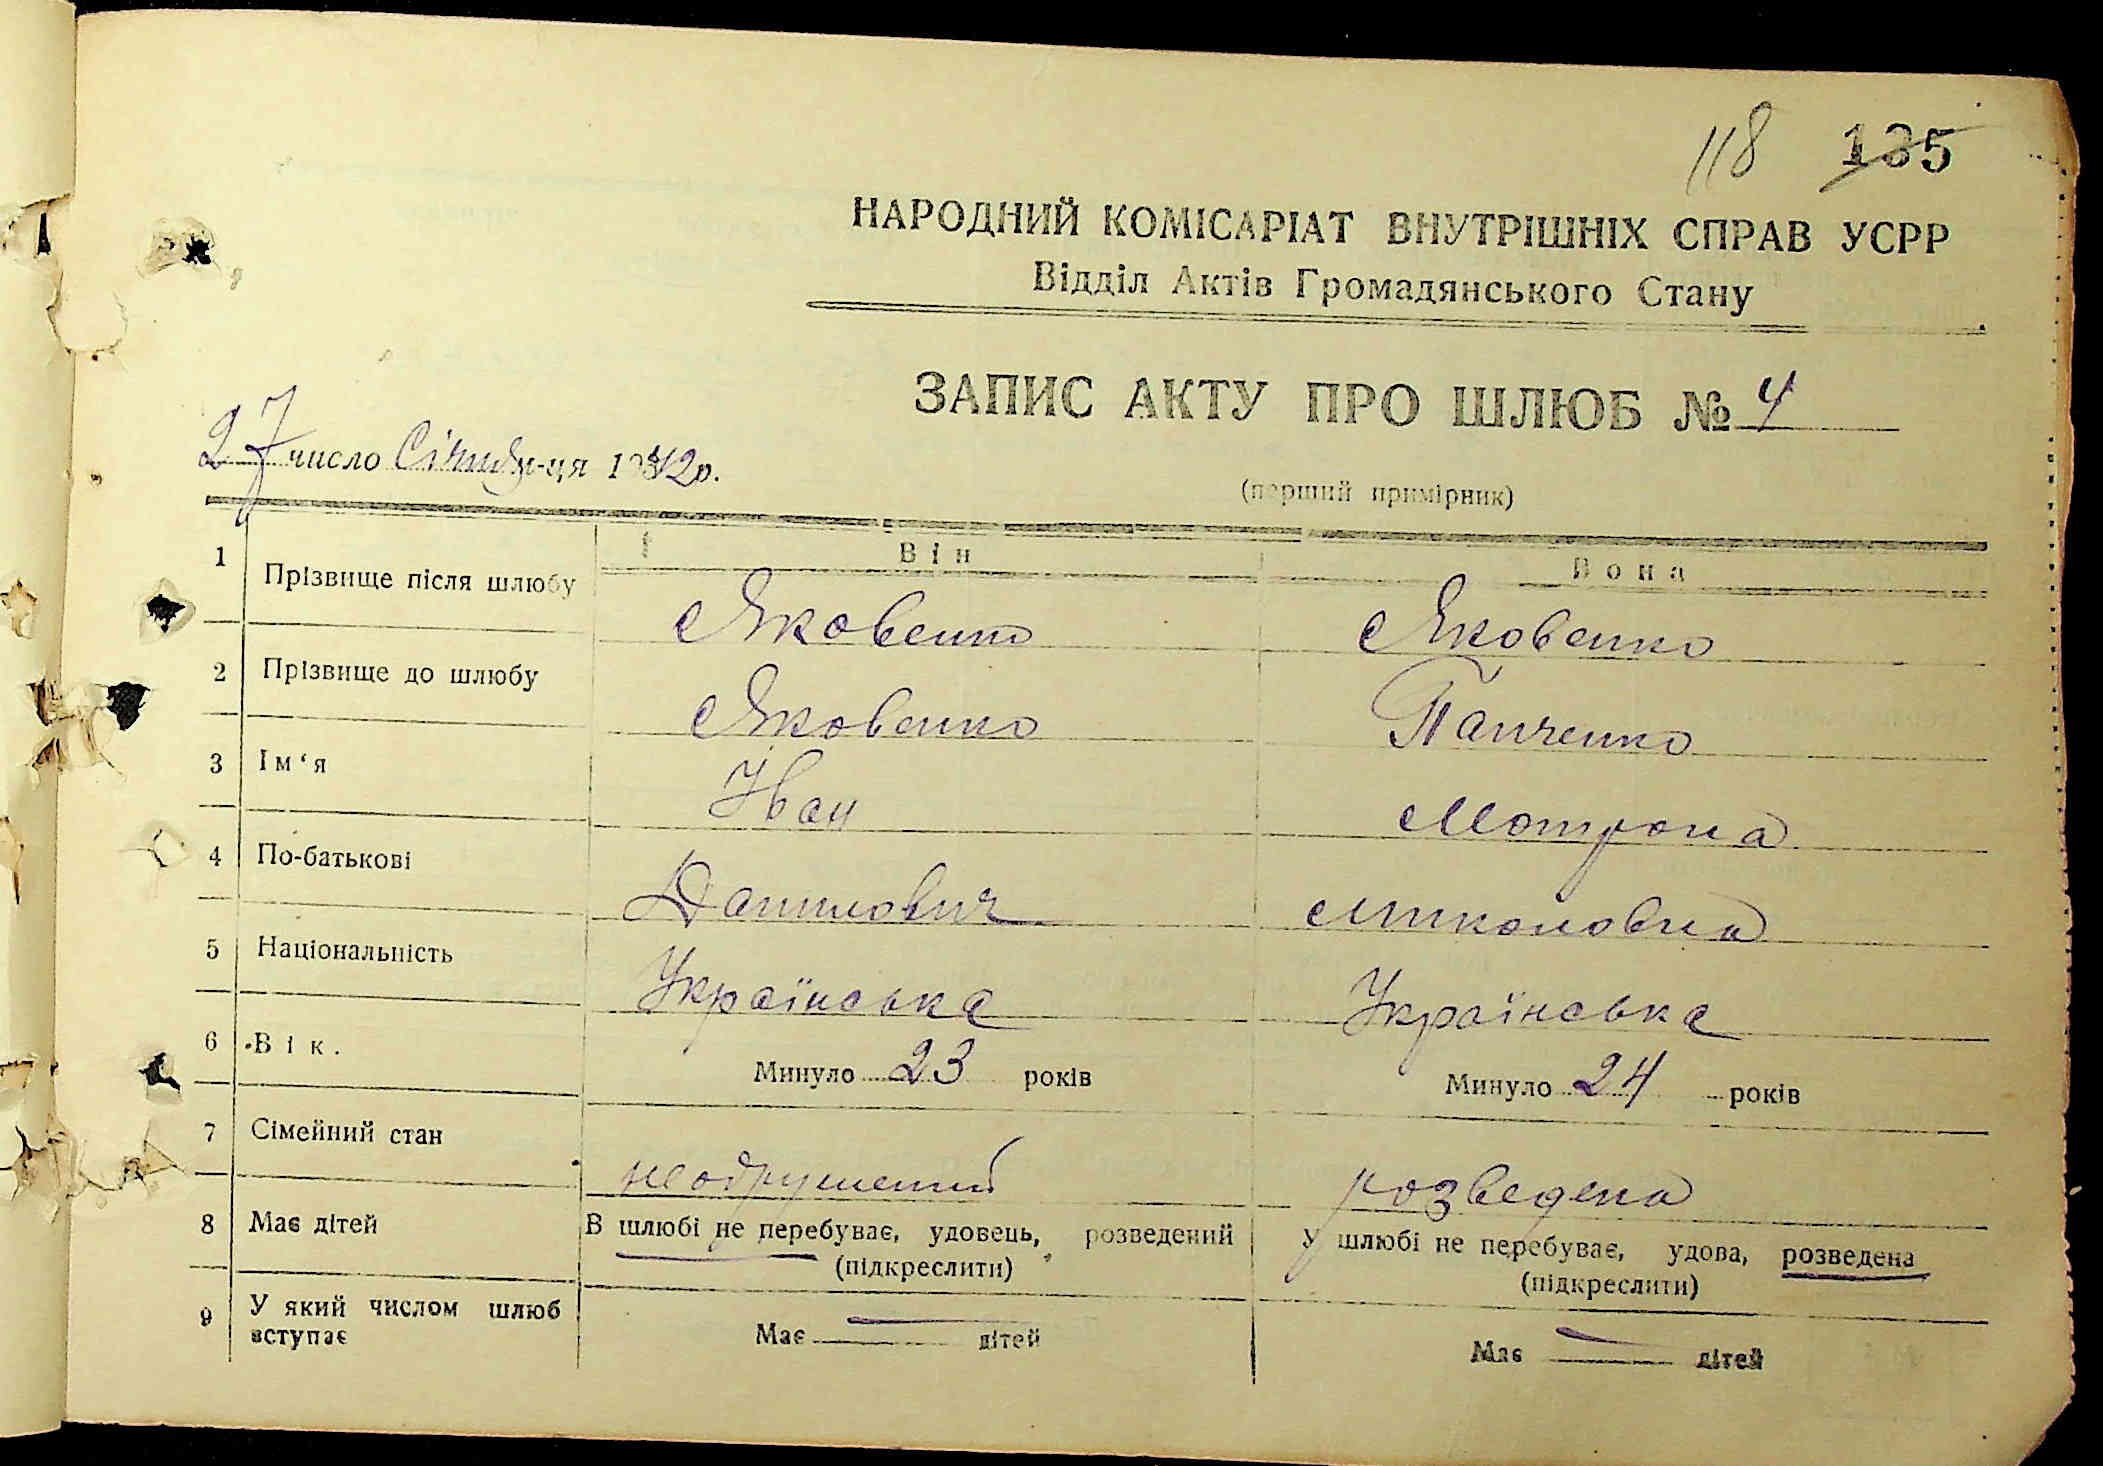 118 135
НАРОДНИЙ КОМІСАРІАТ ВНУТРІШНІХ СПРАВ УСРР
Відділ Актів Громадянського Стану
ЗАПИС АКТУ ПРО ШЛЮБ № 4
27 число Січня м-ця 1942 р.
(перший примірник)
Він Вона
1 Прізвище після шлюбу Яковенко Яковенко
2 Прізвище до шлюбу Яковенко Панченко
3 Ім‘я Іван Мотрона
4 По-батькові Данилович Миколовна
5 Національність Українська Українська
6 Вік. Минуло 23 років Минуло 24 років
7 Сімейний стан неодружений розведена
8 Має дітей В шлюбі не перебуває, удовець, розведений У шлюбі не перебуває, удова, розведена
(підкреслити) (підкреслити)
9 У який числом шлюб вступає Має — дітей Має — дітей